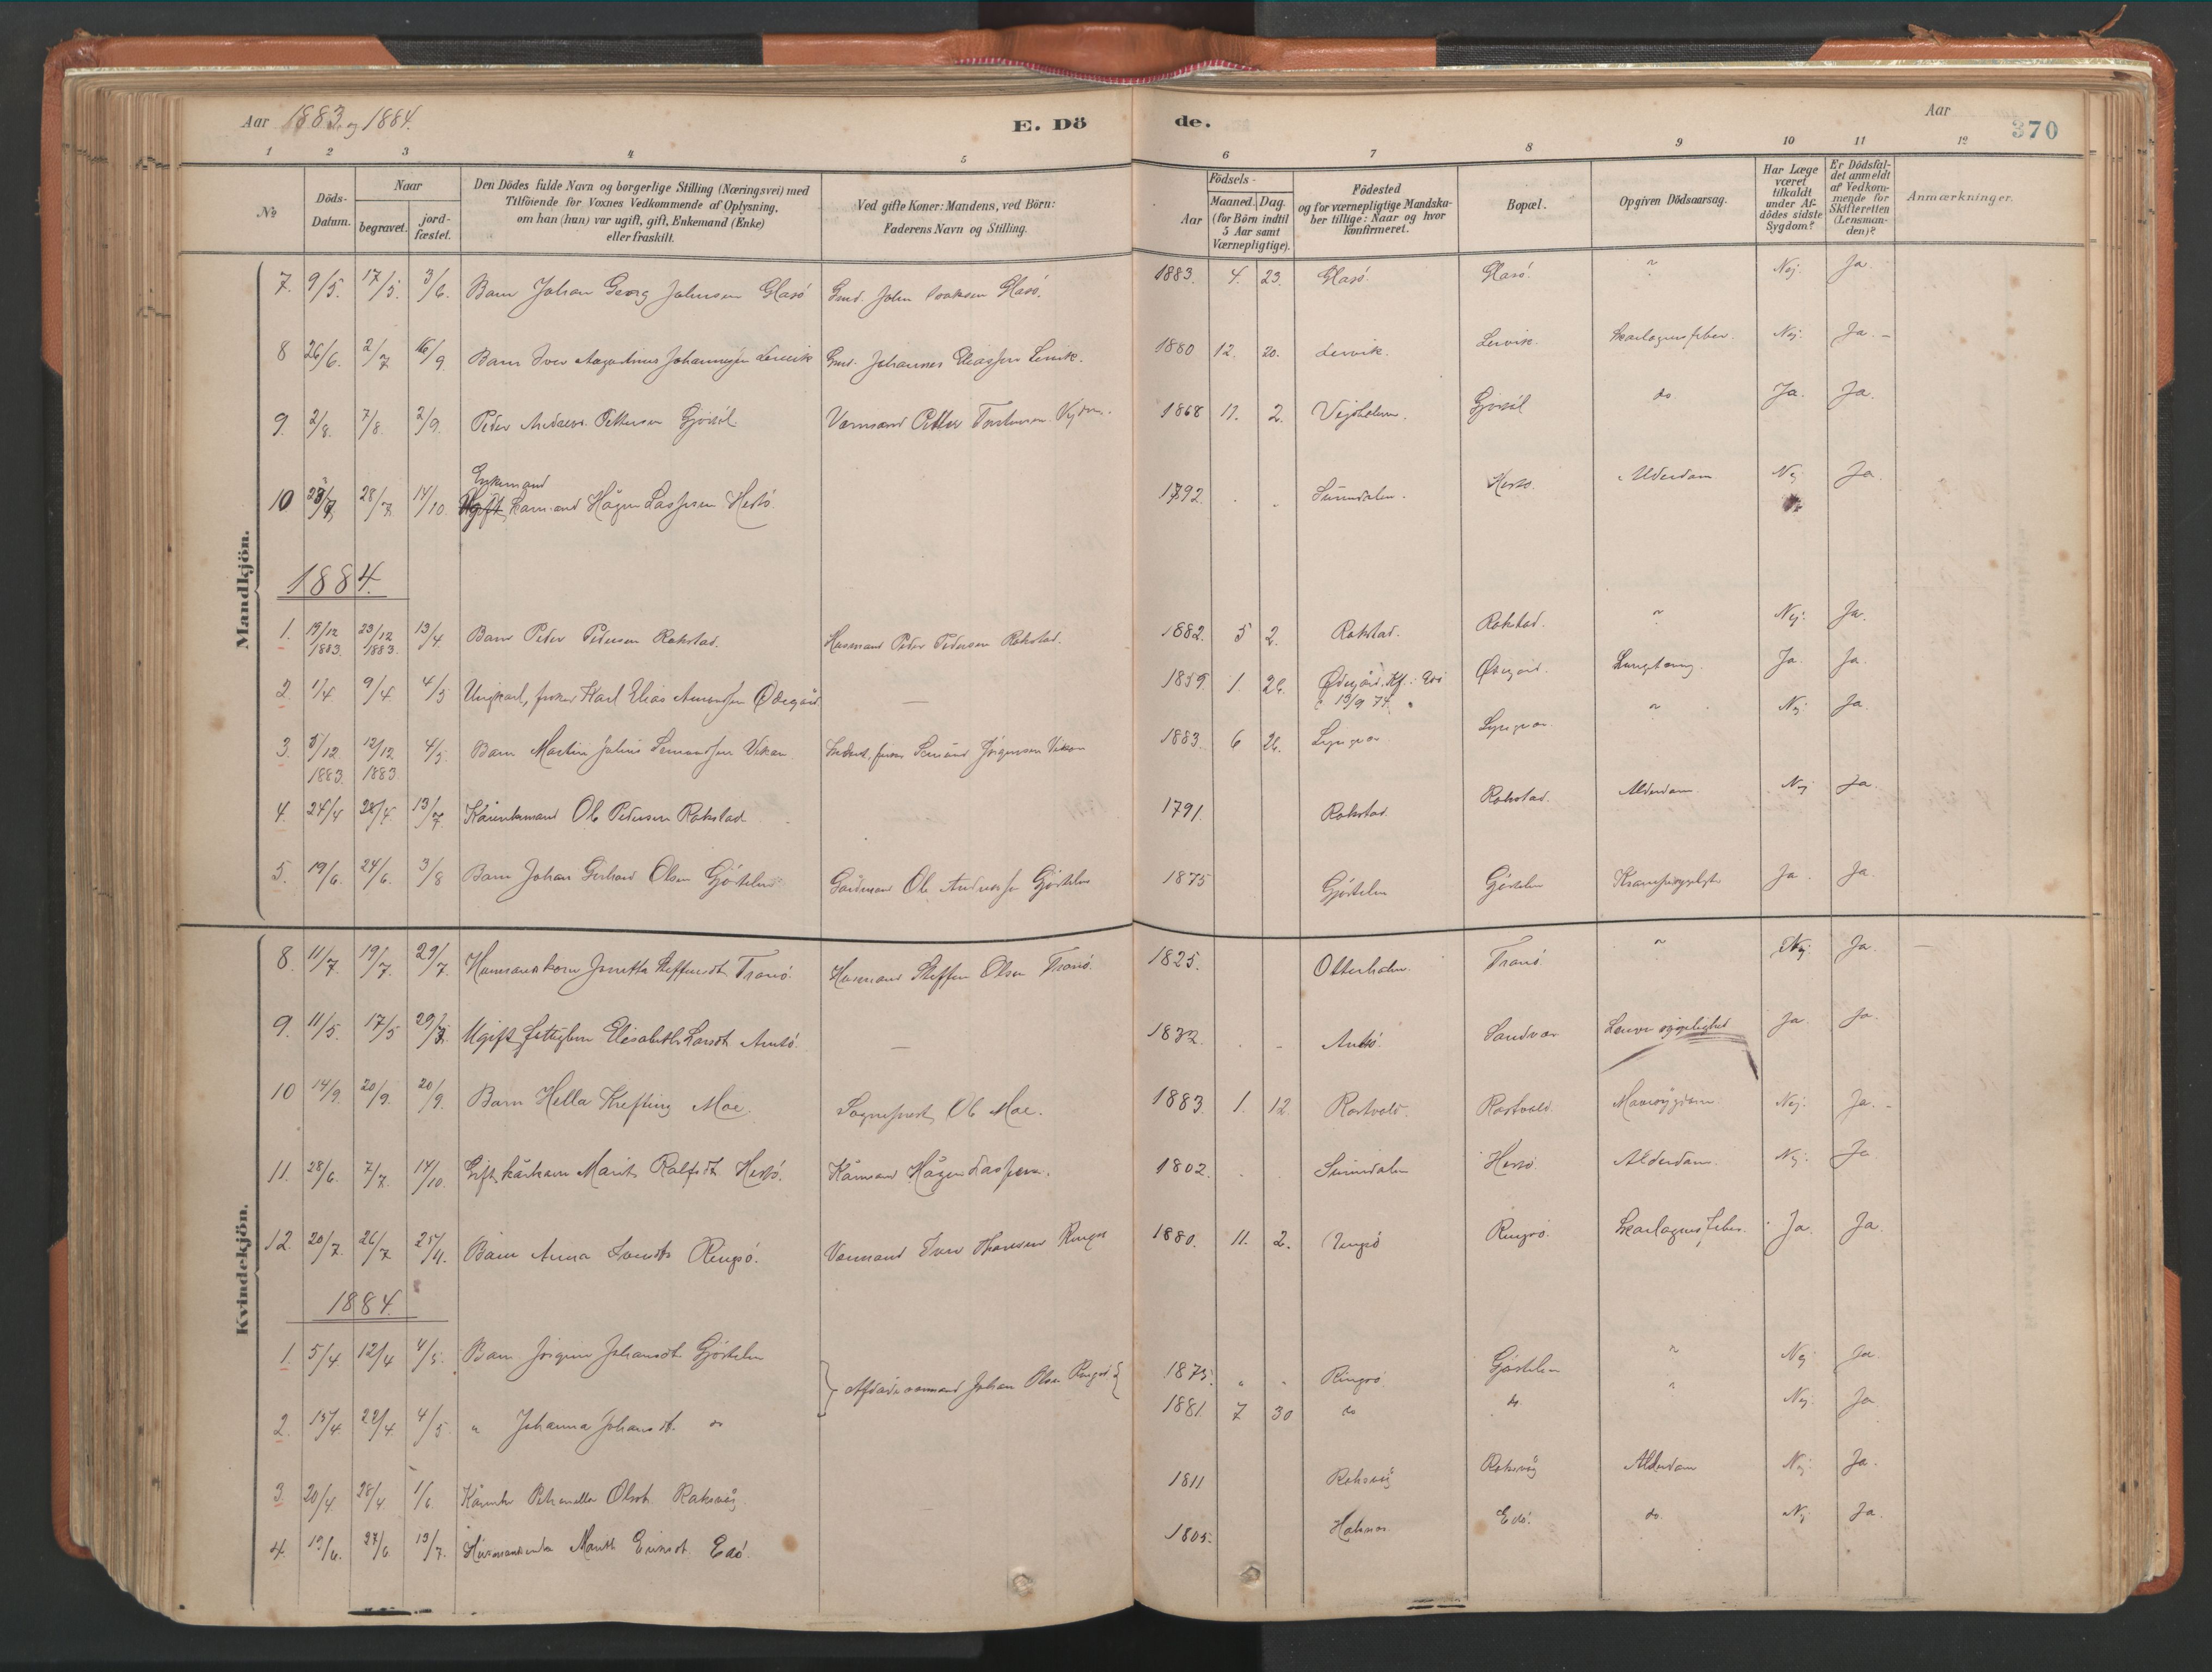 Aar 1883 og 1884.
E. Dö
de.
Aar
370
1 2 3 4 5 6 7 8 9 10 11 12
№
Döds-Datum.
Naar
begravet.
jord-fæstet.
Den Dödes fulde Navn og borgerlige Stilling (Næringsvei) med
Tilföiende for Voxnes Vedkommende af Oplysning,
om han (hun) var ugift, gift, Enkemand (Enke)
eller fraskilt.
Ved gifte Koner: Mandens, ved Börn:
Faderens Navn og Stilling.
Födsels-
Aar
Maaned. Dag.
(for Börn indtil
5 Aar samt
Værnepligtige).
Födested
og for værnepligtige Mandska-
ber tillige: Naar og hvor
konfirmeret.
Bopæl.
Opgiven Dödsaarsag.
Har Læge
været
tilkaldt
under Af-
dödes sidste
Sygdom?
Er Dödsfal-
det anmeldt
af Vedkom-
mende for
Skifteretten
(Lensman-
den)?
Anmærkninger.
Mandkjön.
7. 9/5. 17/5. 3/6. Barn Johan Georg Johnsen Glasö Gmd. John Isaksen Glasö. 1883. 4. 23. Glasö. Glasö. " Nej. Ja.
8 26/6. 2/7 16/9 Barn Iver Augustinus Johannessen Lervik Gmd. Johannes Eliassen Lervik. 1880 12. 20. Lervik. Lervik. Skarlagensfeber. Nej. Ja. -
9. 2/8. 7/8. 2/9. Peder Andreas Pettersen Gjösöl Petter 1868 11. 2. Vejsholmen. Gjösöl do Ja. Ja.
Enkemand
10 28/7 14/10. Ugift Kaarmand Hågen Lassesen Hestö 1792. Surendalen. Hestö. Alderdom Nej Ja.
1884.
1. 19/12 1883. 23/12 1883. 13/4 Barn Peder Pedersen Rokstad. Husmand Peder Pedersen Rokstad. 1882. 5 2. Rokstad. Rokstad. " Nej. Ja.
2. 1/4 9/4 4/5 Ungkarl, fisker Karl Elias Amundsen Ödegård — 1859. 1. 26. Ödegård. Kf.: Edö
13/9 74. Ödegård. Lungetæring. Ja. Ja.
3. 5/12 1883. 12/12 1883 4/5. Barn Martin Julius Vikan Jörgensen Vikan 1883. 6 26. Lyngvær Lyngvær. " Nej. Ja.
4. 24/4 28/4. 13/7. Kårenkemand Ole Pedersen Rokstad 1791. Rokstad Rokstad. Alderdom Nej Ja.
5. 19/6. 24/6. 3/8 Barn Johan Gerhard Olsen Gjöstelen Gårdmand Ole Andersen Gjöstelen 1875 Gjöstelen Gjöstelen Ja. Ja.
Kvindekjön.
8. 11/7. 19/7. 29/7. Husmandskone Steffensdt. Tranö. Husmand Steffen Olsen Tranö. 1825. Otterholm. Tranö. " Nej. Ja.
9. 11/5. 17/5 29/7. Ugift fattiglem Elisabeth Larsdt. Arnsö. — Sandvær Ja. Ja.
10 14/9. 20/9. 20/9. Barn Hella Krefting Moe. Sogneprest Ole Moe. 1883. 1. 12. Rostvold. Rostvold. Mavesygdom. Nej. Ja. -
11. 28/6. 7/7. 14/10. Gift kårkone Marit Hestö. Kårmand Hågen Lassesen. 1802. Surendalen Hestö. Alderdom. Nej. Ja
12. 20/7. 26/7 Barn Anna Iversdt. Ringsö. Iver Ringsö 1880. 11. 2. Ringsö Ringsö. Skarlagensfeber. Ja. Ja.
1884.
1. 5/4 12/4 4/5. Barn Jörgine Johansdt. Gjöstelen } Johan Olsen Ringsö { 1875. " " Ringsö Gjöstelen " Nej Ja.
2. 15/4 22/4 4/5. " Johanna Johansdt. do 1881. 7 30 do do. " Nej. Ja
3. 20/4. 28/4 1/6. Olsdt. Raksvåg 1811 Raksvåg Raksvåg Alderdom Nej. Ja.
4. 27/6. 13/7. Husmandsenke Marith Edö. 1805. Edö. do. Nej Ja.